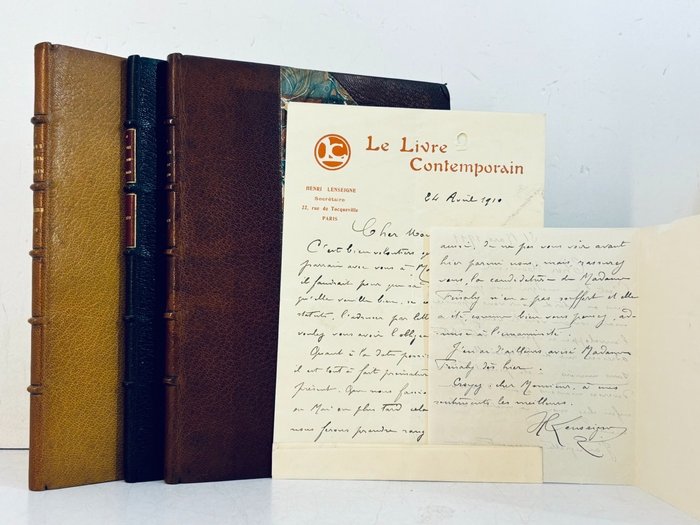 LC
Le Livre
Contemporain
HENRI LENSEIGNE
Secrétaire
22, rue de Tocqueville
PARIS
24 Avril 1910
Cher Mon
C'est bien volontiers q
parrain avec vous à M
il faudrait pour que sa
qu'elle veuille bien,
statuts, l'adresser par
voulez vous avoir l'oblig
Quant à la date
il est tout à fait prématuré
présent. Que nous fassio
en Mai ou plus tard cela
nous ferons prendre rang
aussi, de ne pas vous voir avant
hier parmi nous, mais, rassurez
vous, la candidature de Madame
Finaly n'en a pas souffert et elle
a été, comme bien vous pensez, ad-
mise à l'unanimité.
J'en ai d'ailleurs avisé Madame
Finaly dès hier.
Croyez, cher Monsieur, à mes
sentiments les meilleurs.
HLenseigne